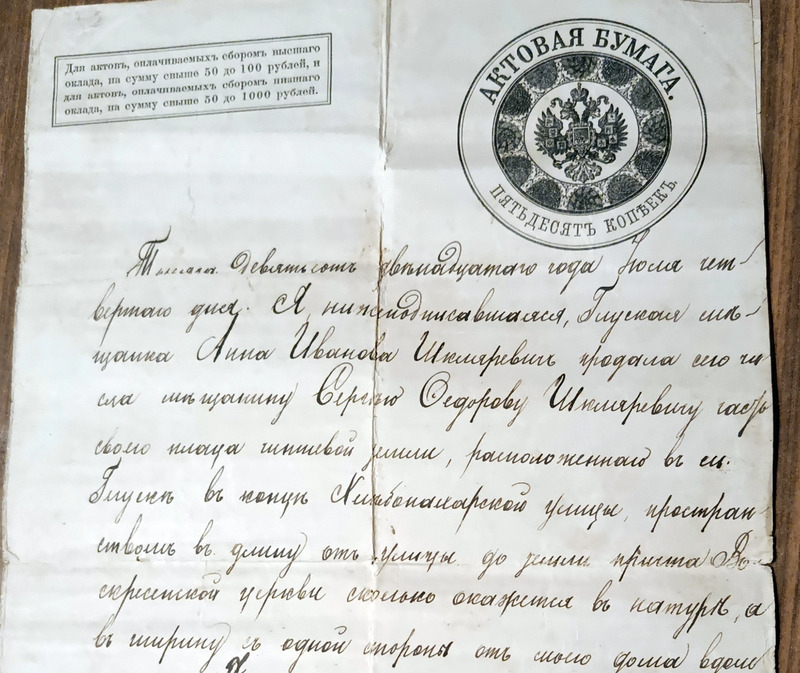 Для актовъ, оплачиваемыхъ сборомъ высшаго
оклада, на сумму свыше 50 до 100 рублей, и
для актовъ, оплачиваемыхъ сборомъ низшаго
оклада, на сумму свыше 50 до 1000 рублей.
АКТОВАЯ БУМАГА.
ПЯТЬДЕСЯТЪ КОПѢЕКЪ
Тысяча девятьсотъ двѣнадцатаго года Іюля чет-
вертаго дня. Я, нижеподписавшаяся, Глуская мѣ-
щанка Анна Иванова Шкляревичъ продала сего чи
сла мѣщанину Сергѣю Ѳедорову Шкляревичу часть
своего плаца чиншевой земли, расположеннаго въ м.
Глускѣ въ концѣ улицы, простран-
ствомъ въ длину отъ улицы до земли причта Во-
скресенской церкви сколько окажется въ натурѣ, а
въ ширину съ одной стороны отъ моего дома вдоль